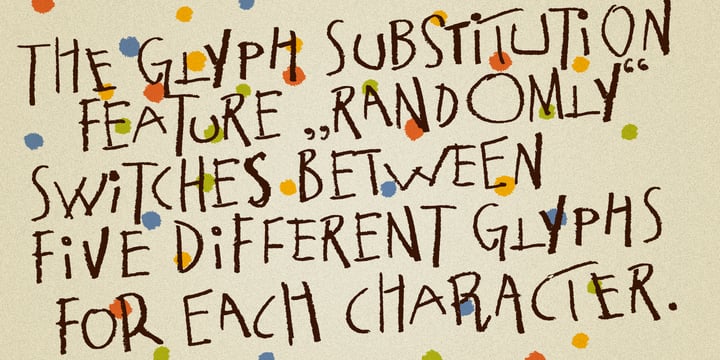 THE GLYPH SUBSTITUTION
FEATURE „RANDOMLY“
SWITCHES BETWEEN
FIVE DIFFERENT GLYPHS
FOR EACH CHARACTER.